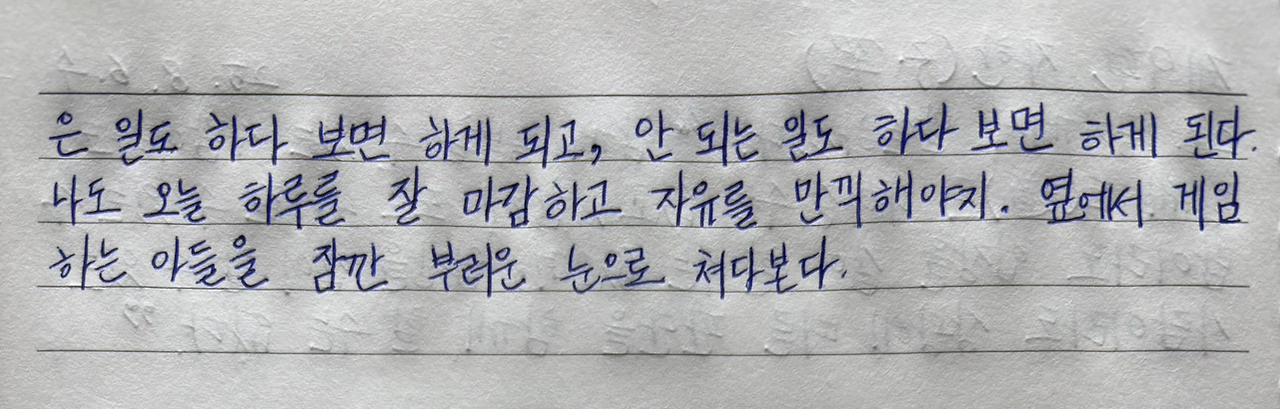 은 일도 하다 보면 하게 되고, 안 되는 일도 하다 보면 하게 된다.
나도 오늘 하루를 잘 마감하고 자유를 만끽해야지. 옆에서 게임
하는 아들을 잠깐 부러운 눈으로 쳐다본다.